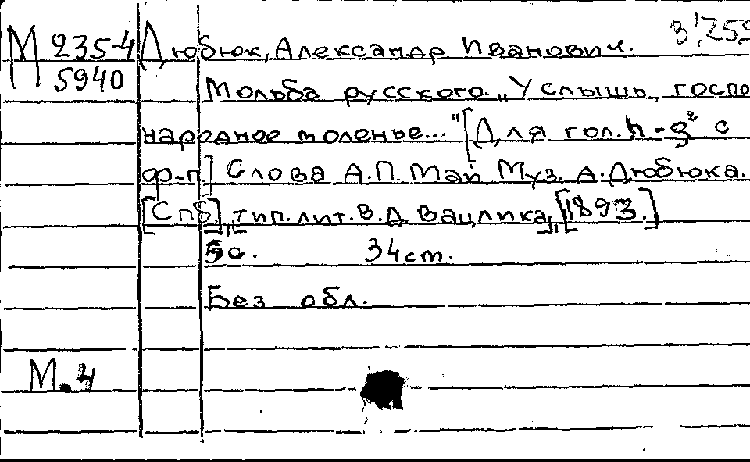 М 235-4 Дюбюк, Александр Иванович. 31259
5940 Мольба русского. „Услышь, госпо
народное моленье..." [Для гол. h-g² с
ф-п] Слова А.П. Май Муз. А. Дюбюка.
[СПб], тип. лит. В.Д. Вацлика, [1893.]
5 с. 34 см.
Без обл.
М. 4